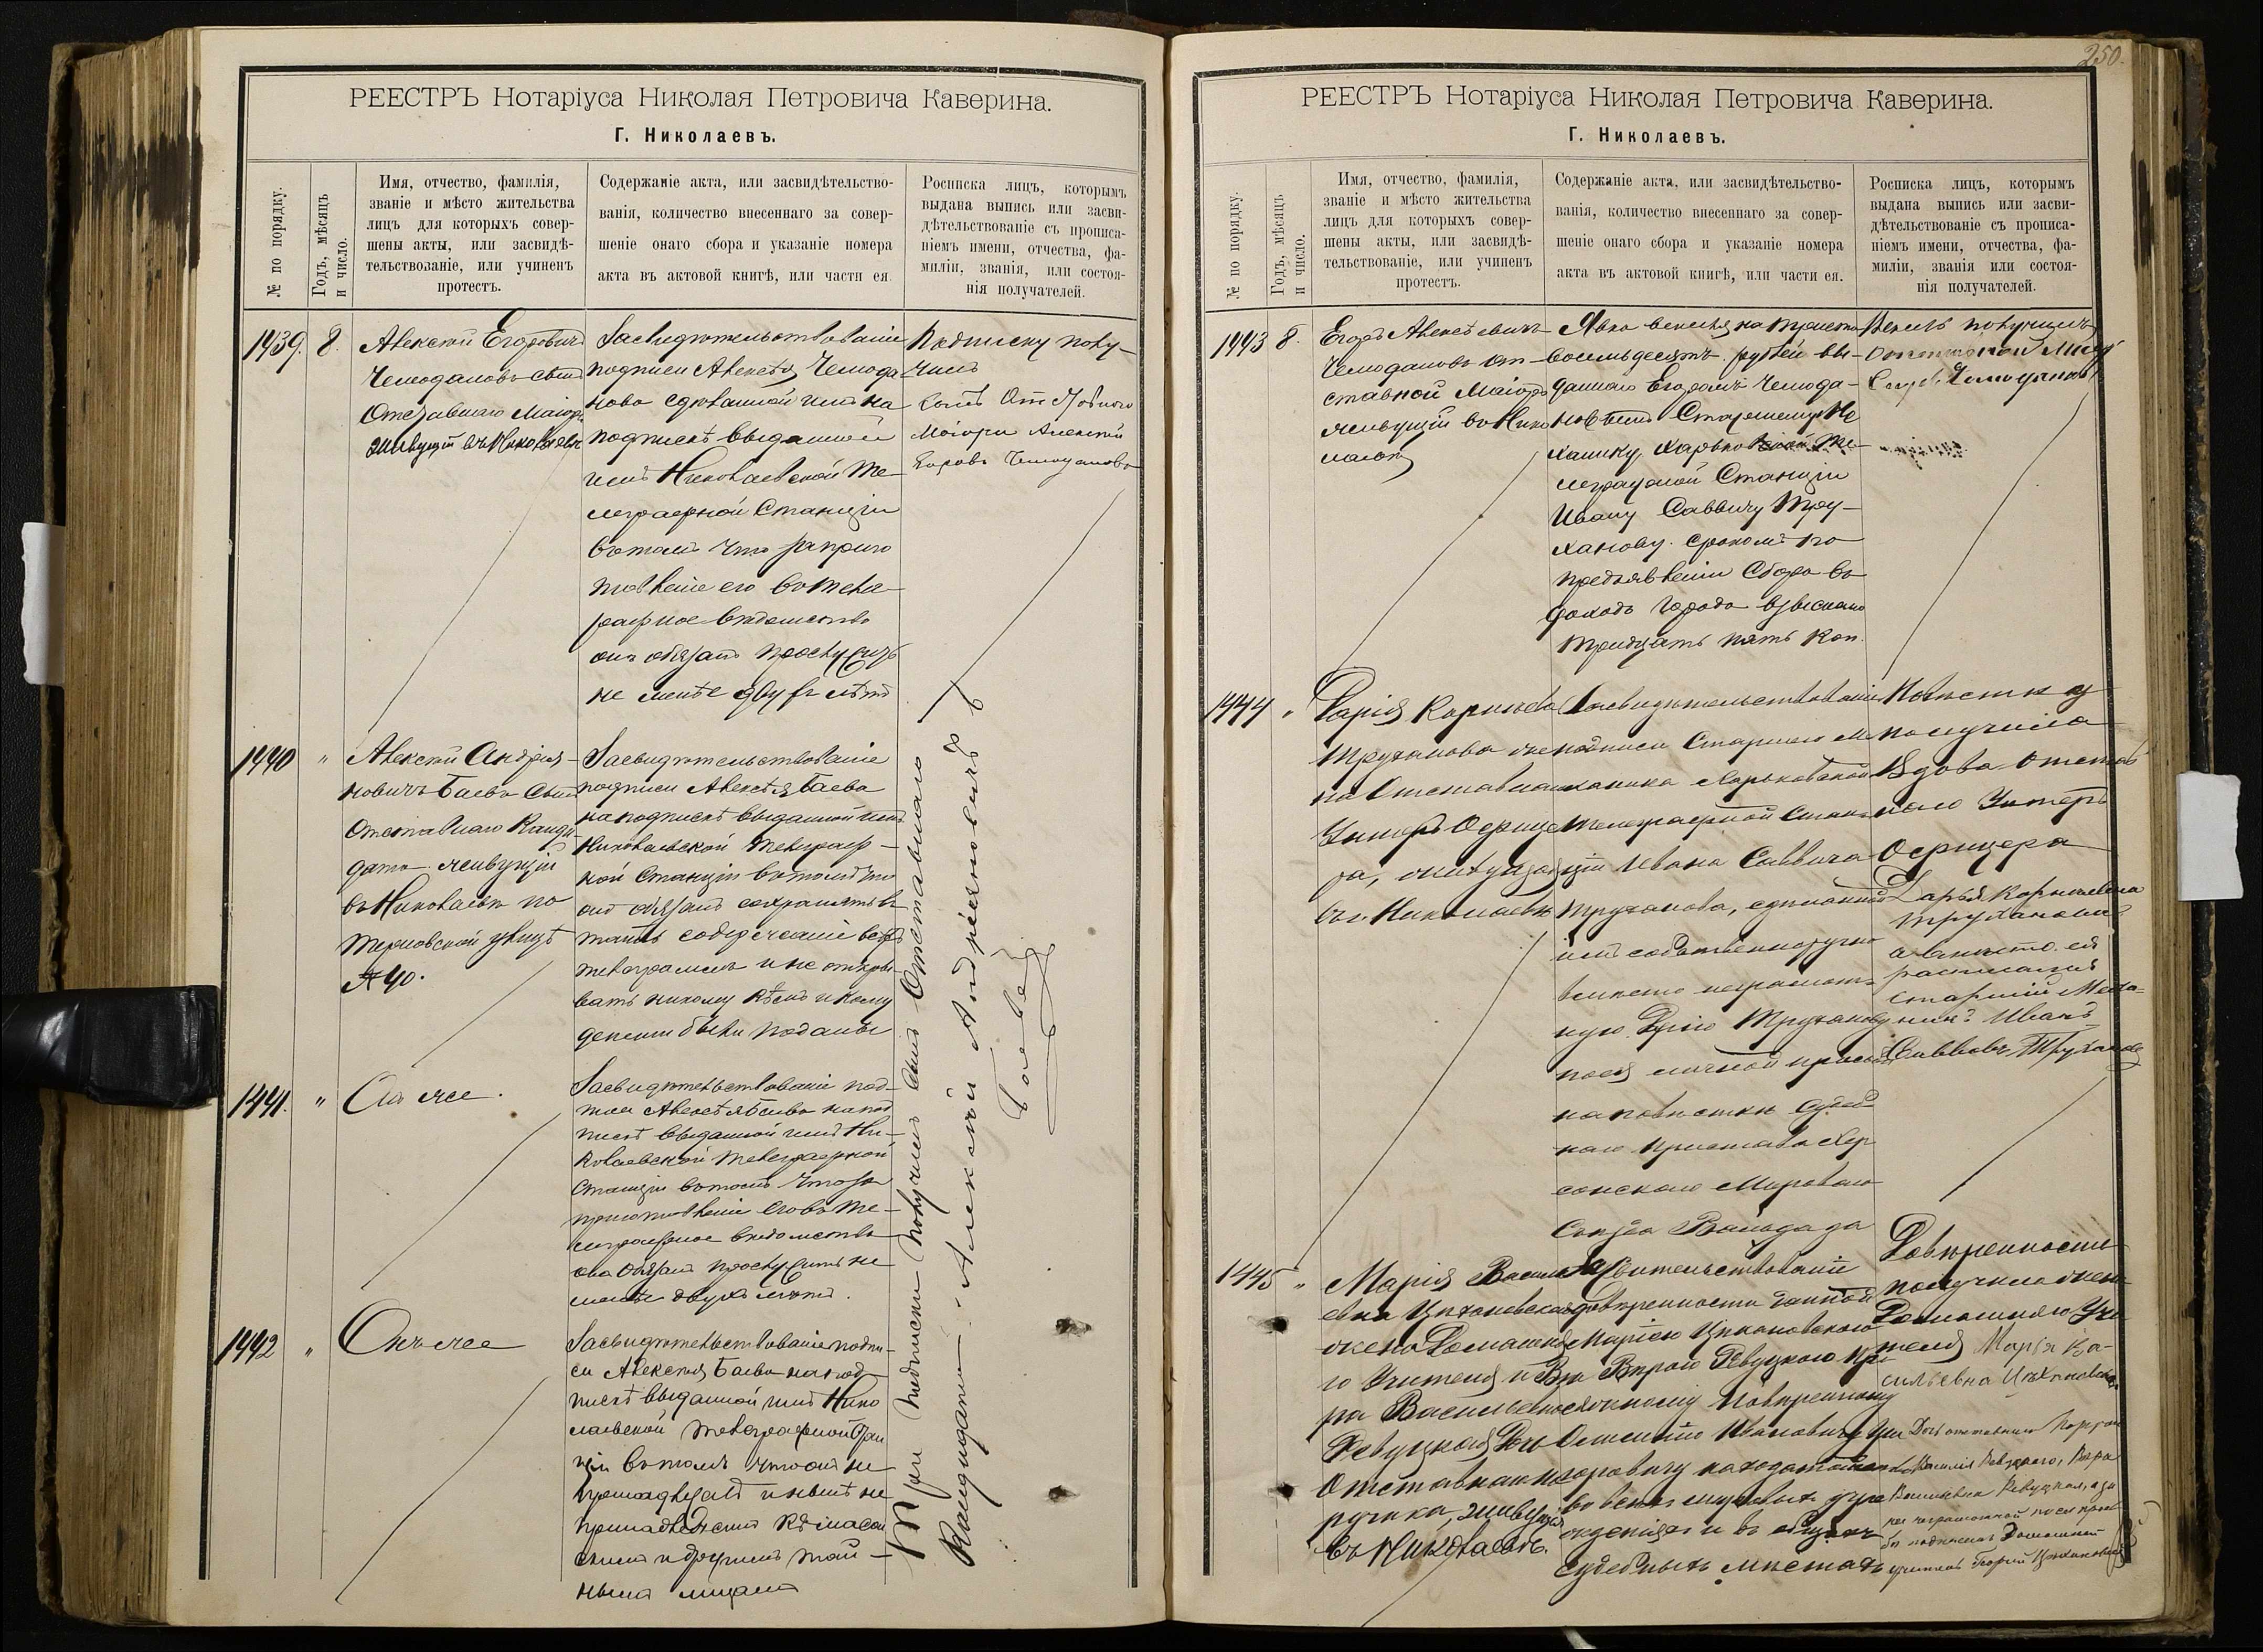 РЕЕСТРЪ Нотаріуса Николая Петровича Каверина.
Г. Николаевъ.
№ по порядку.
Годъ, мѣсяцъ
и число.
Имя, отчество, фамилія,
званіе и мѣсто жительства
лицъ для которыхъ совер-
шены акты, или засвидѣ-
тельствованіе, или учиненъ
протестъ.
Содержаніе акта, или засвидѣтельство-
ванія, количество внесеннаго за совер-
шеніе онаго сбора и указаніе номера
акта въ актовой книгѣ, или части ея.
Росписка лицъ, которымъ
выдана выпись или засви-
дѣтельствованіе съ прописа-
ніемъ имени, отчества, фа-
миліи, званія, или состоя-
нія получателей.
1439. 8.
Алексѣй Егоровичъ
Чемодановъ сынъ
Отставнаго Маіора
живущій въ Николаевѣ
Засвидѣтельствованіе
подписи Алексѣя Чемода
нова сдѣланной имъ на
подпискѣ выданной
имъ Николаевской Те-
леграфной Станціи
въ томъ что за приго
товленіе его въ Телег
рафное вѣдомство
онъ обязанъ прослужить
не менѣе двухъ лѣтъ
Подписку полу-
чилъ
Сынъ Отставнаго
Маіора Алексѣй
Егоровъ Чемодановъ
1440 "
Алексѣй Андрія-
новичъ Баевъ Сынъ
Отставнаго Канди
дата живущій
въ Николаевѣ по
Терновской улицѣ
№ 40.
Засвидѣтельствованіе
подписи Алексѣя Баева
на подпискѣ выданной имъ
Николаевской Телеграф-
ной Станціи въ томъ что
онъ обязанъ сохранять въ
тайнѣ содержаніе всѣхъ
телеграммъ и не откры-
вать никому кѣмъ и кому
депеши были поданы
1441. "
Онъ же.
Засвидѣтельствованіе под-
писи Алексѣя Баева на под
пискѣ выданной имъ Ни-
колаевской Телеграфной
Станціи въ томъ что за
приготовленіе его въ Те-
леграфное вѣдомство
онъ обязанъ прослужить не
менѣе двухъ лѣтъ.
1442 "
Онъ же
Засвидѣтельствованіе подпи-
си Алексѣя Баева на под
пискѣ выданной имъ Нико
лаевской Телеграфной Стан
ціи въ томъ что онъ не
принадлежалъ и нынѣ не
принадлежитъ къ масон
скимъ и другимъ тай-
нымъ
Три подписки получилъ сынъ Отставнаго
Кандидата Алексѣй Андреяновичъ
Баевъ
250.
РЕЕСТРЪ Нотаріуса Николая Петровича Каверина.
Г. Николаевъ.
№ по порядку.
Годъ, мѣсяцъ
и число.
Имя, отчество, фамилія,
званіе и мѣсто жительства
лицъ для которыхъ совер-
шены акты, или засвидѣ-
тельствованіе, или учиненъ
протестъ.
Содержаніе акта, или засвидѣтельство-
ванія, количество внесеннаго за совер-
шеніе онаго сбора и указаніе номера
акта въ актовой книгѣ, или части ея.
Росписка лицъ, которымъ
выдана выпись или засви-
дѣтельствованіе съ прописа-
ніемъ имени, отчества, фа-
миліи, званія или состоя-
нія получателей.
1443 8.
Егоръ Алексѣевичъ
Чемодановъ от-
ставной Маіоръ
живущій въ Нико
лаевѣ
Явка векселя на триста
восемьдесятъ рублей вы-
даннаго Егоромъ Чемода-
новымъ Старшему Ме
ханику Харьковской Те-
леграфной Станціи
Ивану Саввичу Тру-
ханову срокомъ по
предъявленіи Сбора въ
доходъ города взыскано
тридцать пять коп.
Вексель получилъ
Отставной Маіоръ
Чемодановъ
1444 "
Дарія Корнѣева
Труханова жена
Отставнаго
Унтеръ Офице
ра, живущая
въ г. Николаевѣ
Засвидѣтельствованіе
подписи Старшаго Ме
ханика Харьковской
Телеграфной Стан
ціи Ивана Саввича
Труханова, сдѣланной
имъ собственноручно
вмѣсто неграмот
ной Дарьи Трухановой
по ея личной просьбѣ
на повѣсткѣ Судеб
наго Пристава Хер
сонскаго Мироваго
Съѣзда
Повѣстку
получила
Вдова Отстав
наго Унтеръ
Офицера
Дарья Корнѣевна
Труханова
а вмѣсто ея
расписался
старшій Меха-
никъ Иванъ
Саввовъ Трухановъ
1445 "
Марія Василь
евна Цѣхановская
жена Домашня
го Учителя и Вѣ
ра Васильевна
Ревуцкая Дочь
Отставнаго По
ручика, живущія
въ Николаевѣ.
Засвидѣтельствованіе
довѣренности данной
Маріею Цѣхановскою
и Вѣрою Ревуцкою При
сяжному Повѣренному
Ивановичу
судебныхъ мѣстахъ
Довѣренность
получила жена
Домашняго Учи
теля Марія Ва-
сильевна Цѣхановская
Дочь отставнаго Поручика
Василія Ревуцкаго, Вѣра
Васильевна Ревуцкая, а за
нея неграмотной по ея прось
бѣ подписалъ Домашній
учитель Георгій Цѣхановскій